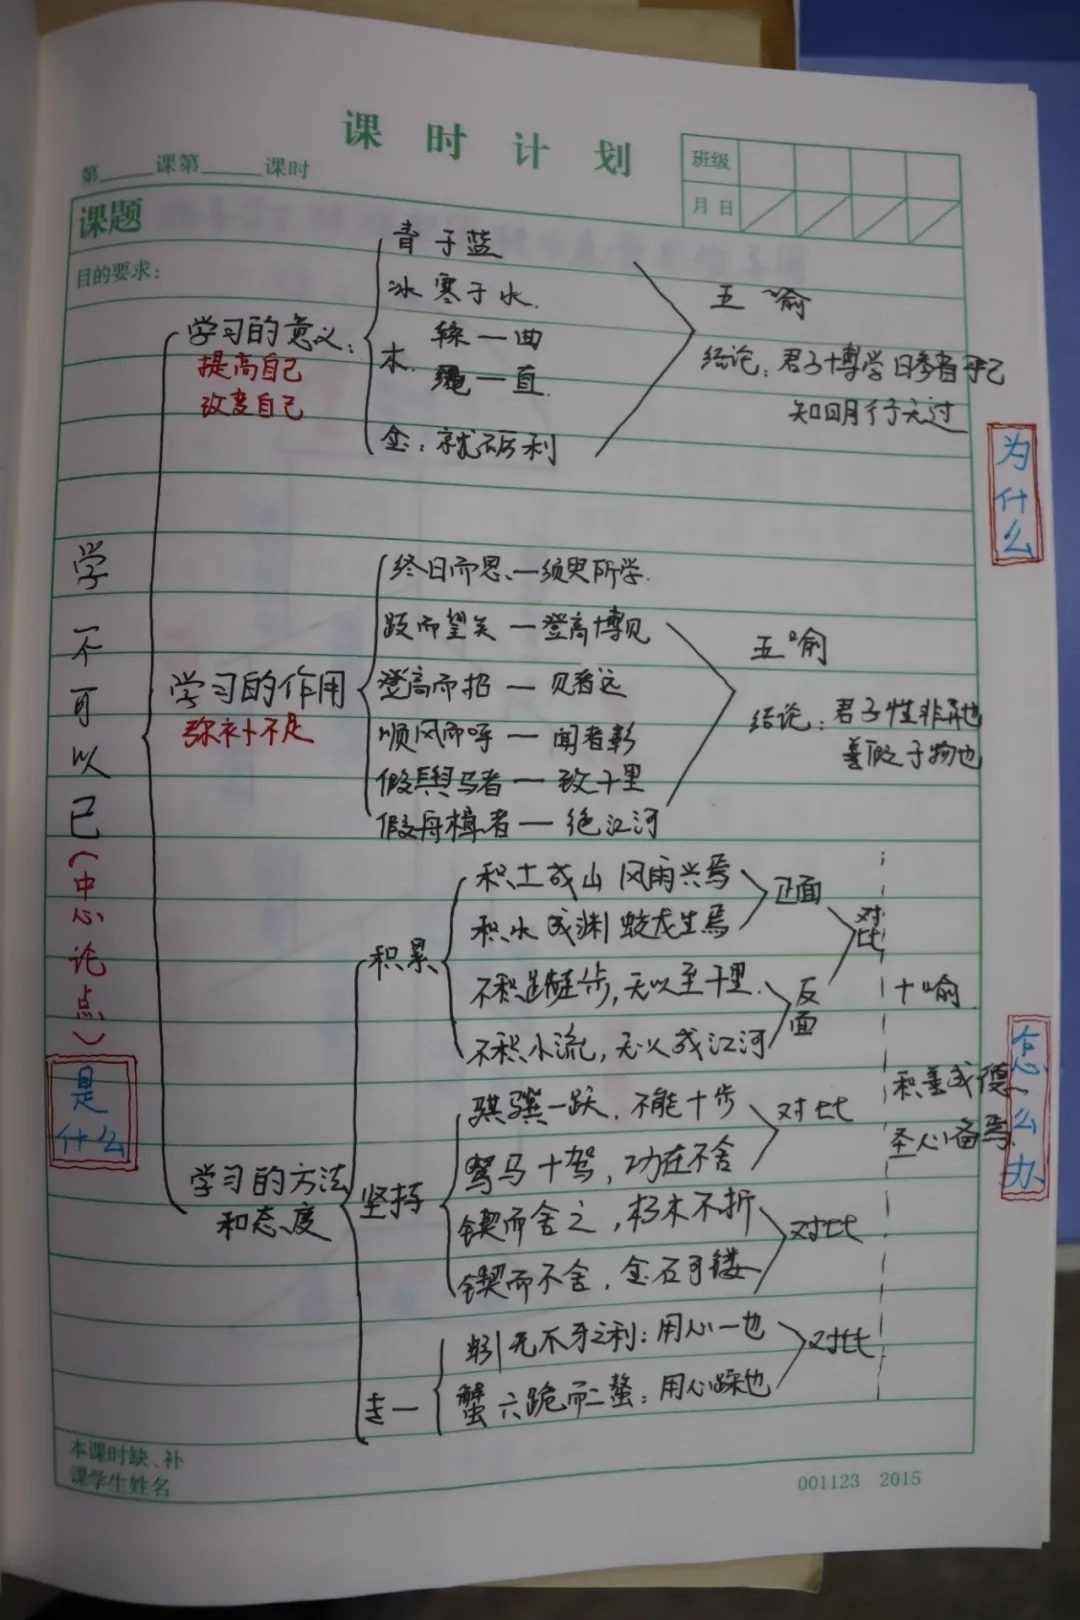 课时计划
第____课第____课时
班级
月日
课题
目的要求：
学不可以已(中心论点)
是什么
学习的意义：
提高自己
改变自己
青于蓝
冰寒于水.
木.
輮一曲
绳一直.
金：就砺利
五喻
结论：君子博学日参省乎己
知明行无过
为什么
学习的作用
弥补不足
终日而思、一须臾所学.
跂而望矣一登高博见
登高而招一见者远
顺风而呼一闻者彰
假舆马者一致千里
假舟楫者一绝江河
五喻
结论：君子性非异也
善假于物也
学习的方法
和态度
积累
积土成山 风雨兴焉
积水成渊 蛟龙生焉
正面
不积跬步，无以至千里.
不积小流，无以成江河
反面
对比
坚持
骐骥一跃，不能十步
驽马十驾，功在不舍
对比
锲而舍之，朽木不折
锲而不舍，金石可镂
对比
专一
蚓无爪牙之利：用心一也
蟹六跪而二螯：用心躁也
对比
十喻
积善成德、
圣心备焉.
怎么办
本课时缺、补
课学生姓名
001123 2015